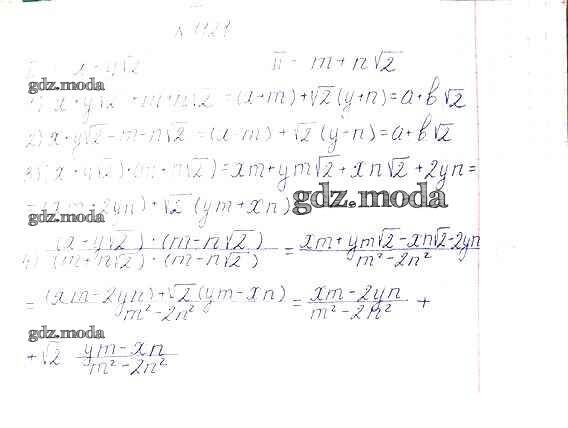 № 1121
I - x+y√2    II - m+n√2
gdz.moda
1) x+y√2+m+n√2=(x+m)+√2(y+n)=a+b√2
2) x+y√2-m-n√2=(x-m)+√2(y-n)=a+b√2
3) (x+y√2)·(m+n√2)=xm+ym√2+xn√2+2yn=
=(xm+2yn)+√2(ym+xn)
gdz.moda
gdz.moda
4) (x+y√2)·(m-n√2)/(m+n√2)·(m-n√2) = xm+ym√2-xn√2-2yn/m²-2n²
gdz.moda
= (xm-2yn)+√2(ym-xn)/m²-2n² = xm-2yn/m²-2n² +
gdz.moda
+√2 ym-xn/m²-2n²